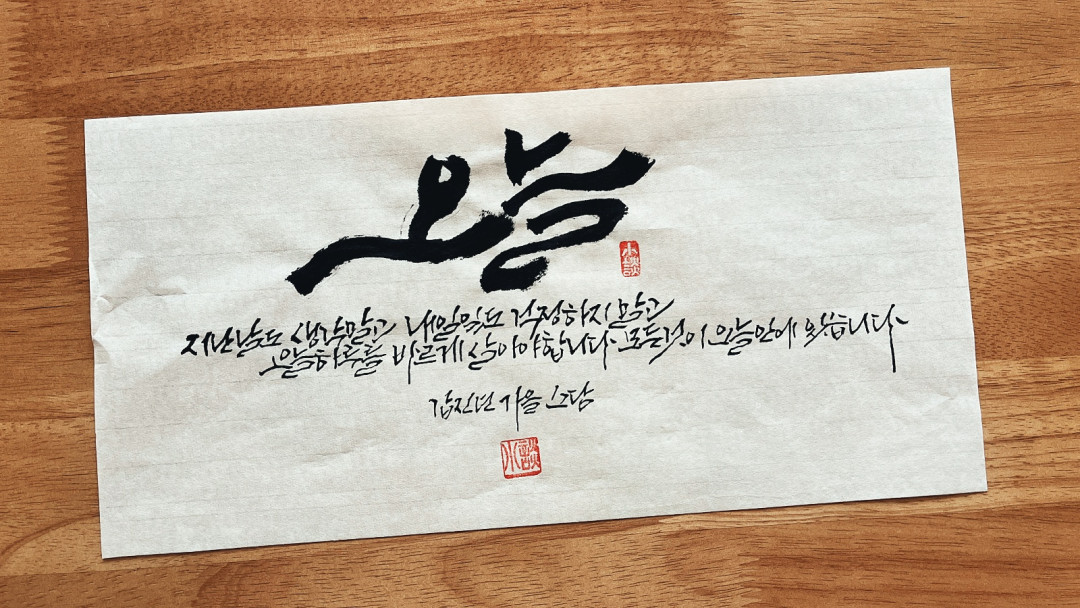 오늘
지난날도 생각말고 내일일도 걱정하지 말고
오늘하루를 바르게 살아야합니다. 모든것이 오늘안에 있습니다.
갑진년 가을 소담